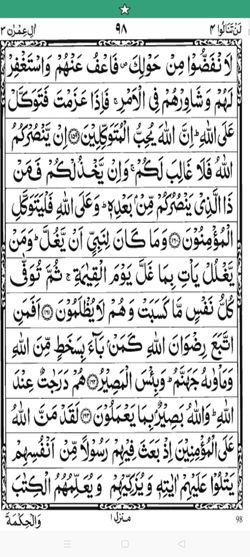 لَنْ تَنَالُوا ۴ ٩٨ اٰلِ عِمْرٰن ۳
لَا نْفَضُّوْا مِنْ حَوْلِكَ ۪ فَاعْفُ عَنْهُمْ وَاسْتَغْفِرْ
لَهُمْ وَشَاوِرْهُمْ فِی الْاَمْرِ ۚ فَاِذَا عَزَمْتَ فَتَوَكَّلْ
عَلَی اللّٰهِ ؕ اِنَّ اللّٰهَ یُحِبُّ الْمُتَوَكِّلِیْنَ ﴿۱۵۹﴾ اِنْ یَّنْصُرْكُمُ
اللّٰهُ فَلَا غَالِبَ لَكُمْ ۚ وَاِنْ یَّخْذُلْكُمْ فَمَنْ
ذَا الَّذِیْ یَنْصُرُكُمْ مِّنْۢ بَعْدِهٖ ؕ وَعَلَی اللّٰهِ فَلْیَتَوَكَّلِ
الْمُؤْمِنُوْنَ ﴿۱۶۰﴾ وَمَا كَانَ لِنَبِیٍّ اَنْ یَّغُلَّ ؕ وَمَنْ
یَّغْلُلْ یَاْتِ بِمَا غَلَّ یَوْمَ الْقِیٰمَةِ ۚ ثُمَّ تُوَفّٰی
كُلُّ نَفْسٍ مَّا كَسَبَتْ وَهُمْ لَا یُظْلَمُوْنَ ﴿۱۶۱﴾ اَفَمَنِ
اتَّبَعَ رِضْوَانَ اللّٰهِ كَمَنْۢ بَآءَ بِسَخَطٍ مِّنَ اللّٰهِ
وَمَاْوٰىهُ جَهَنَّمُ ؕ وَبِئْسَ الْمَصِیْرُ ﴿۱۶۲﴾ هُمْ دَرَجٰتٌ عِنْدَ
اللّٰهِ ؕ وَاللّٰهُ بَصِیْرٌۢ بِمَا یَعْمَلُوْنَ ﴿۱۶۳﴾ لَقَدْ مَنَّ اللّٰهُ
عَلَی الْمُؤْمِنِیْنَ اِذْ بَعَثَ فِیْهِمْ رَسُوْلًا مِّنْ اَنْفُسِهِمْ
یَتْلُوْا عَلَیْهِمْ اٰیٰتِهٖ وَیُزَكِّیْهِمْ وَیُعَلِّمُهُمُ الْكِتٰبَ
98 منزل ۱ وَالْحِكْمَةَ